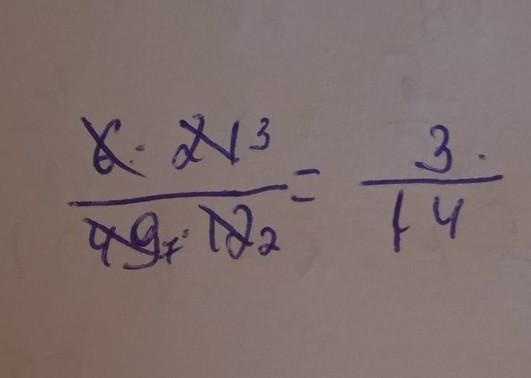 6 · 21 3 / 49 7 · 12 2 = 3 / 14